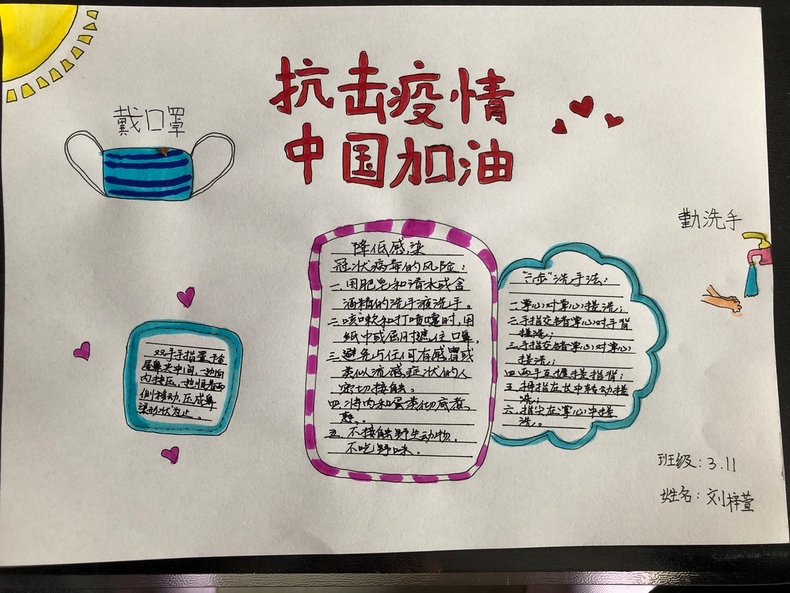 抗击疫情
中国加油
戴口罩
勤洗手
双手手指置于金
属鼻夹中间,一边向
内按压,一边顺着两
侧移动,压成鼻
梁形状为止。
降低感染
冠状病毒的风险:
一.用肥皂和清水或含
酒精的洗手液洗手。
二.咳嗽和打喷嚏时,用
纸巾或屈肘遮住口鼻。
三.避免与任何有感冒或
类似流感症状的人
密切接触。
四.将肉和蛋类彻底煮
熟。
五.不接触野生动物,
不吃野味。
"六步"洗手法:
一.掌心对掌心搓洗;
二.手指交错掌心对手背
搓洗;
三.手指交错掌心对掌心
搓洗;
四.两手互握搓指背;
五.拇指在掌中转动搓
洗;
六.指尖在掌心中搓
洗。
班级:3.11
姓名:刘梓萱